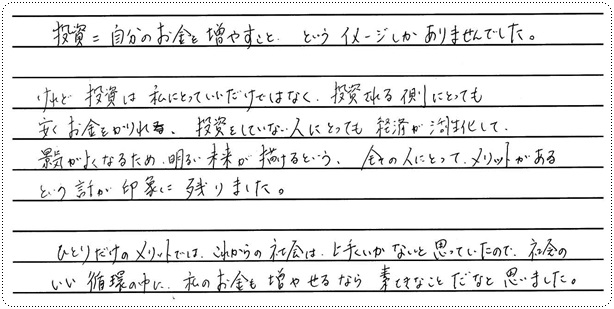 投資=自分のお金を増やすこと、というイメージしかありませんでした。
けれど投資は私にとっていいだけではなく、投資される側にとっても
安くお金をかりれる、投資をしていない人にとっても経済が活性化して、
景気がよくなるため、明るい未来が描けるという、全ての人にとって、メリットがある
という話が印象に残りました。
ひとりだけのメリットでは、これからの社会は、上手くいかないと思っていたので、社会の
いい循環の中に、私のお金も増やせるなら素てきなことだなと思いました。